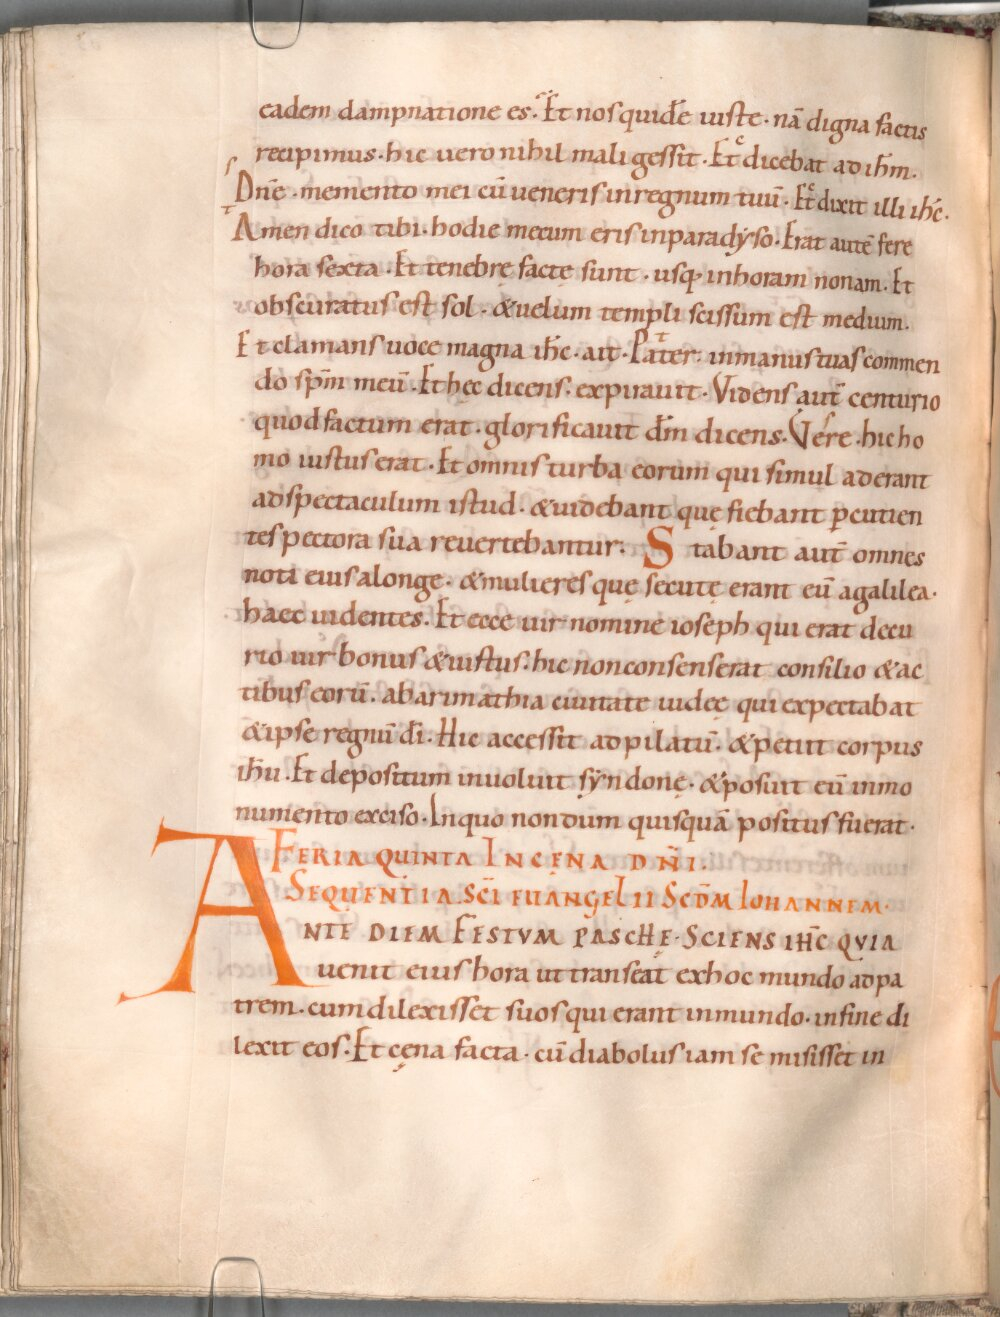 eadem dampnatione es. Et nos quidē iuste. nā digna factis
recipimus. hic uero nihil mali gessit. Et dicebat ad ihm̄.
Dn̄e. memento mei cū ueneris in regnum tuū. Et dixit illi ihc̄.
Amen dico tibi. hodie mecum eris in paradẏso. Erat autē fere
hora sexta. Et tenebrę factę sunt. usq; in horam nonam. Et
obscuratus est sol. &uelum templi scissum est medium.
Et clamans uoce magna ihc̄. ait. Pater. in manus tuas commen
do spm̄ meū. Et hęc dicens. expirauit. Videns aut̄ centurio
quod factum erat. glorificauit dm̄ dicens. Vere. hic ho
mo iustus erat. Et omnis turba eorum qui simul aderant
ad spectaculum istud. &uidebant quę fiebant p̄cutien
tes pectora sua reuertebantur. Stabant aut̄ omnes
noti eius alonge. &mulieres quę secutę erant eū agalilea.
haec uidentes. Et ecce uir nomine ioseph qui erat decu
rio uir bonus &iustus. hic non consenserat consilio &ac
tibus eorū. abarimathia ciuitate iudeę qui expectabat
&ipse regnū dī. Hic accessit ad pilatū. &petiit corpus
ihū. Et depositum inuoluit sẏndonę. &posuit eū in mo
numento exciso. In quo nondum quisquā positus fuerat.
FERIA QUINTA IN CENA DN̄I.
SEQUENTIA SC̄I EUANGELII SCD̄M IOHANNEM
ANTE DIEM FESTVM PASCHE. SCIENS IHC̄ QVIA
uenit eius hora ut transeat ex hoc mundo ad pa
trem. cum dilexisset suos qui erant in mundo. in fine di
lexit eos. Et cęna facta. cū diabolus iam se misisset in